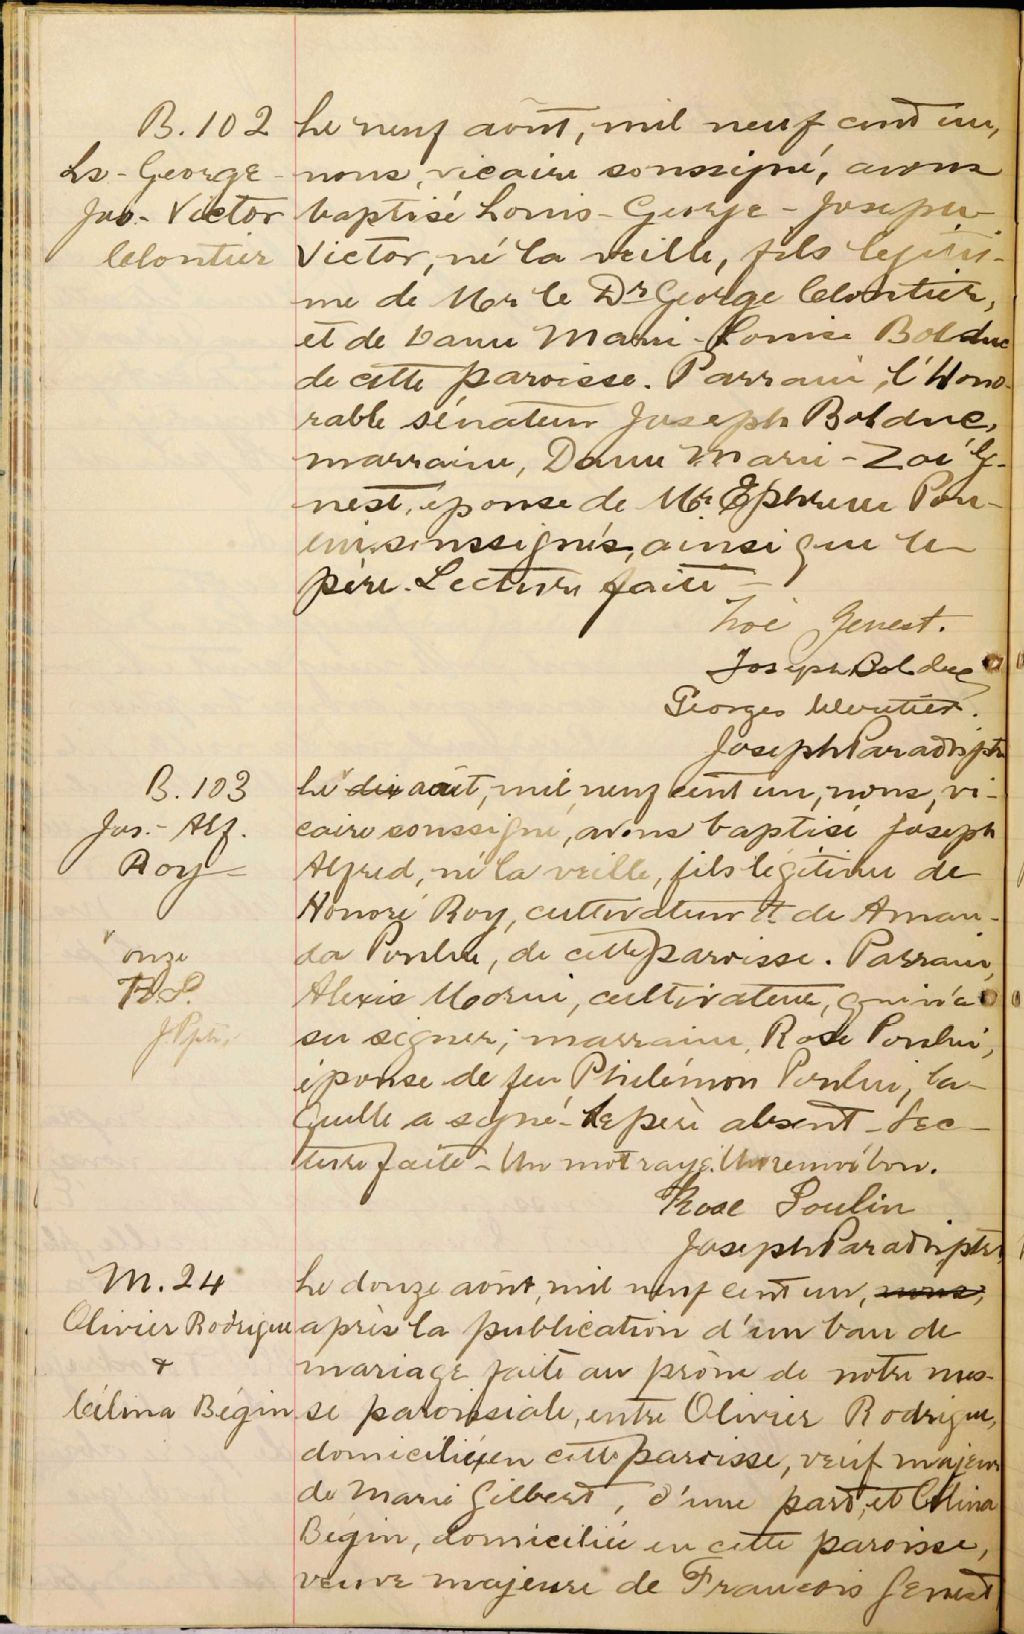 B. 102
Ls - George -
Jos. - Victor
Cloutier
Le neuf août, mil neuf cent un,
nous, vicaire soussigné, avons
baptisé Louis - George - Joseph
Victor, né la veille, fils légiti-
me de Mr le Dr George Cloutier,
et de Dame Marie - Louise Bolduc
de cette paroisse. Parrain, l'Hono-
rable sénateur Joseph Bolduc,
marraine, Dame Marie - Zoé Ge-
nest, épouse de Mr. Ephrem Pou-
lin, soussignés, ainsi que le
père. Lecture faite -
Zoé Genest.
Joseph Bolduc
Georges Cloutier.
Joseph Paradis ptre
B. 103
Jos. - Alf.
Roy
Le dix août, mil neuf cent un, nous, vi-
caire soussigné, avons baptisé Joseph
Alfred, né la veille, fils légitime de
Honoré Roy, cultivateur et de Aman-
da Poulin, de cette paroisse. Parrain,
Alexis Morin, cultivateur, qui n'a
su signer; marraine, Rose Poulin,
épouse de feu Philémon Poulin, la-
quelle a signé - Le père absent - Lec-
ture faite - Un mot rayé. Un renvoi bon.
onze
R.P.
J.P. ptr.
Rose Poulin
Joseph Paradis ptre
M. 24
Olivier Rodrigue
&
Célina Bégin
Le douze août, mil neuf cent un, nous,
après la publication d'un ban de
mariage faite au prône de notre mes-
se paroissiale, entre Olivier Rodrigue,
domicilié en cette paroisse, veuf majeur
de Marie Gilbert, d'une part, et Célina
Bégin, domiciliée en cette paroisse,
veuve majeure de Francois Genest